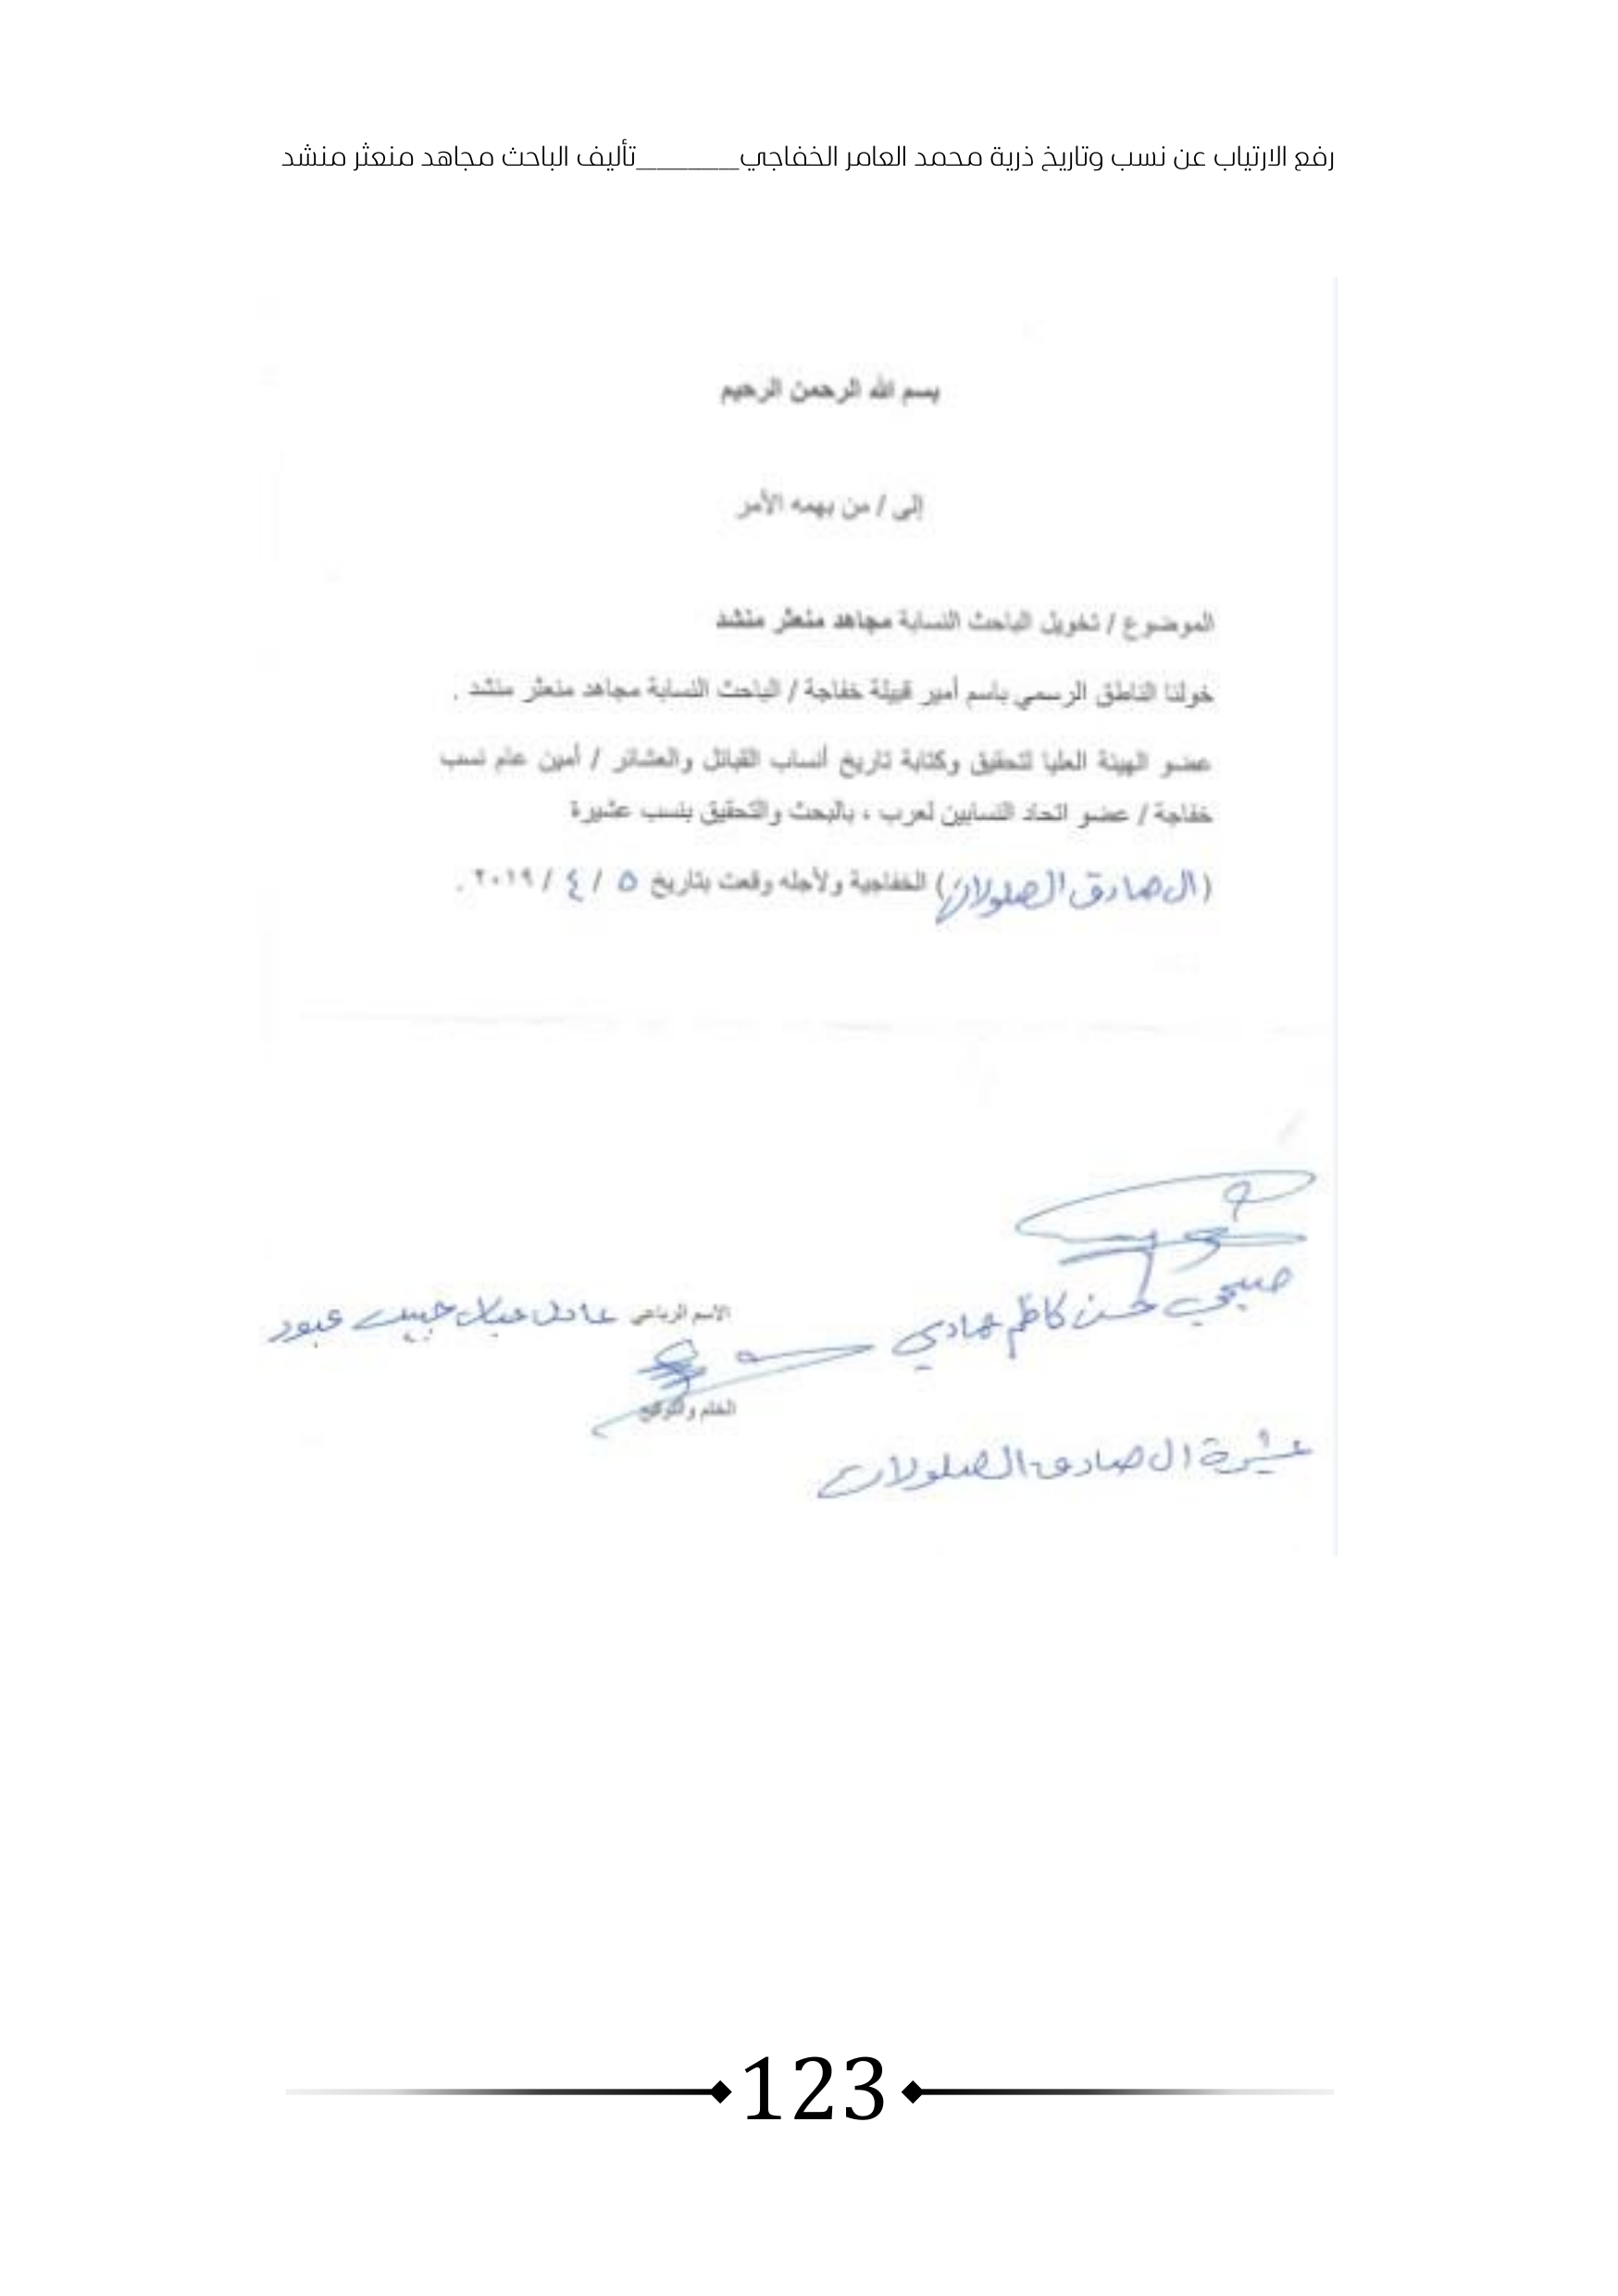 رفع الارتياب عن نسب وتاريخ ذرية محمد العامر الخفاجي________تأليف الباحث مجاهد منعثر منشد
بسم الله الرحمن الرحيم
إلى / من يهمه الأمر
الموضوع / تخويل الباحث النسابة مجاهد منعثر منشد
خولنا الناطق الرسمي باسم أمير قبيلة خفاجة / الباحث النسابة مجاهد منعثر منشد .
عضو الهيئة العليا لتحقيق وكتابة تاريخ أنساب القبائل والعشائر / أمين عام نسب
خفاجة / عضو اتحاد النسابين لعرب ، بالبحث والتحقيق بنسب عشيرة
(ال صادق الصلولان) الخفاجية ولأجله وقعت بتاريخ ٥ / ٤ / ٢٠١٩ .
صبيحي حسن كاظم حمادي
الاسم الرباعي عادل جبيب عبود
الختم والتوقيع
عشيرة ال صادق الصلولان
123